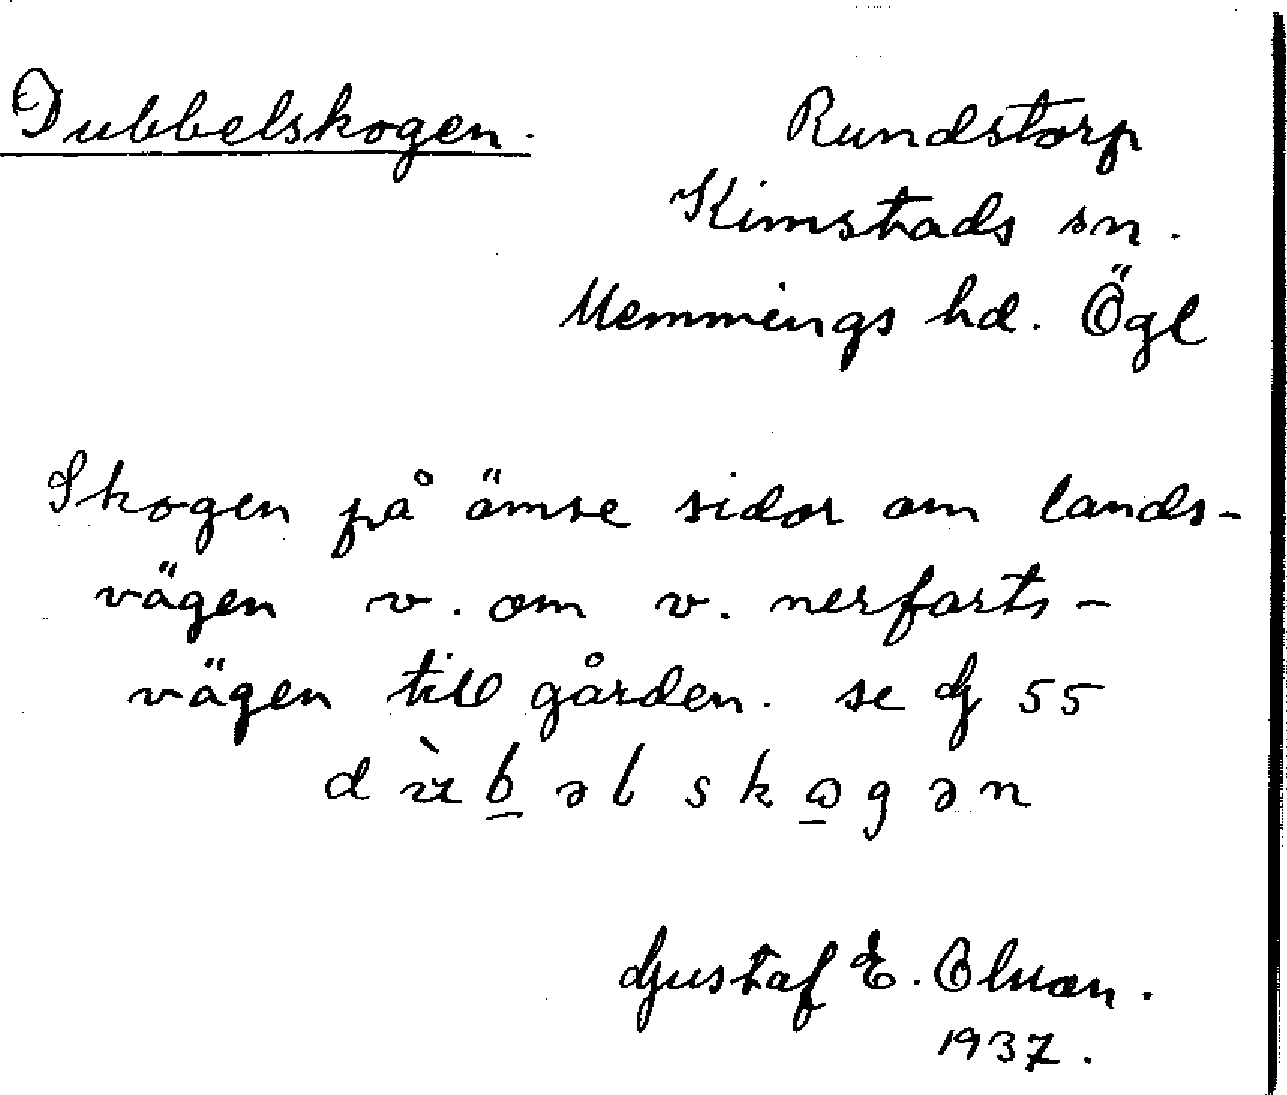 Dubbelskogen.
Rundstorp
Kimstads sn.
Memmings hd. Ögl
Skogen på ömse sidor om lands-
vägen v. om v. nerfarts-
vägen till gården. se G 55
dɯ̀b̲əlskɷ̲gən
Gustaf E. Olsson.
1937.